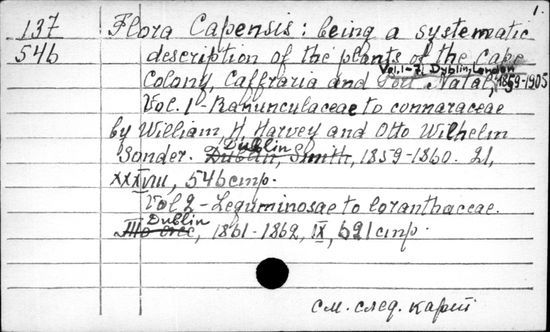 1.
137 Flora Capensis: being a systematic
546 description of the plants of the Cape
Vol. 1-7, Dublin, London
Colony, Caffraria and Port Natal, 1859-1905
Vol. 1 - Ranunculaceae to connaraceae
by William H. Harvey and Otto Wilhelm
Dublin
Sonder. Dublin, Smith, 1859-1860. 21,
XXXVIII, 546 стр.
Vol. 2 - Leguminosae to loranthaceae.
Dublin
1861-1862, IX, 621 стр.
см. след. карт